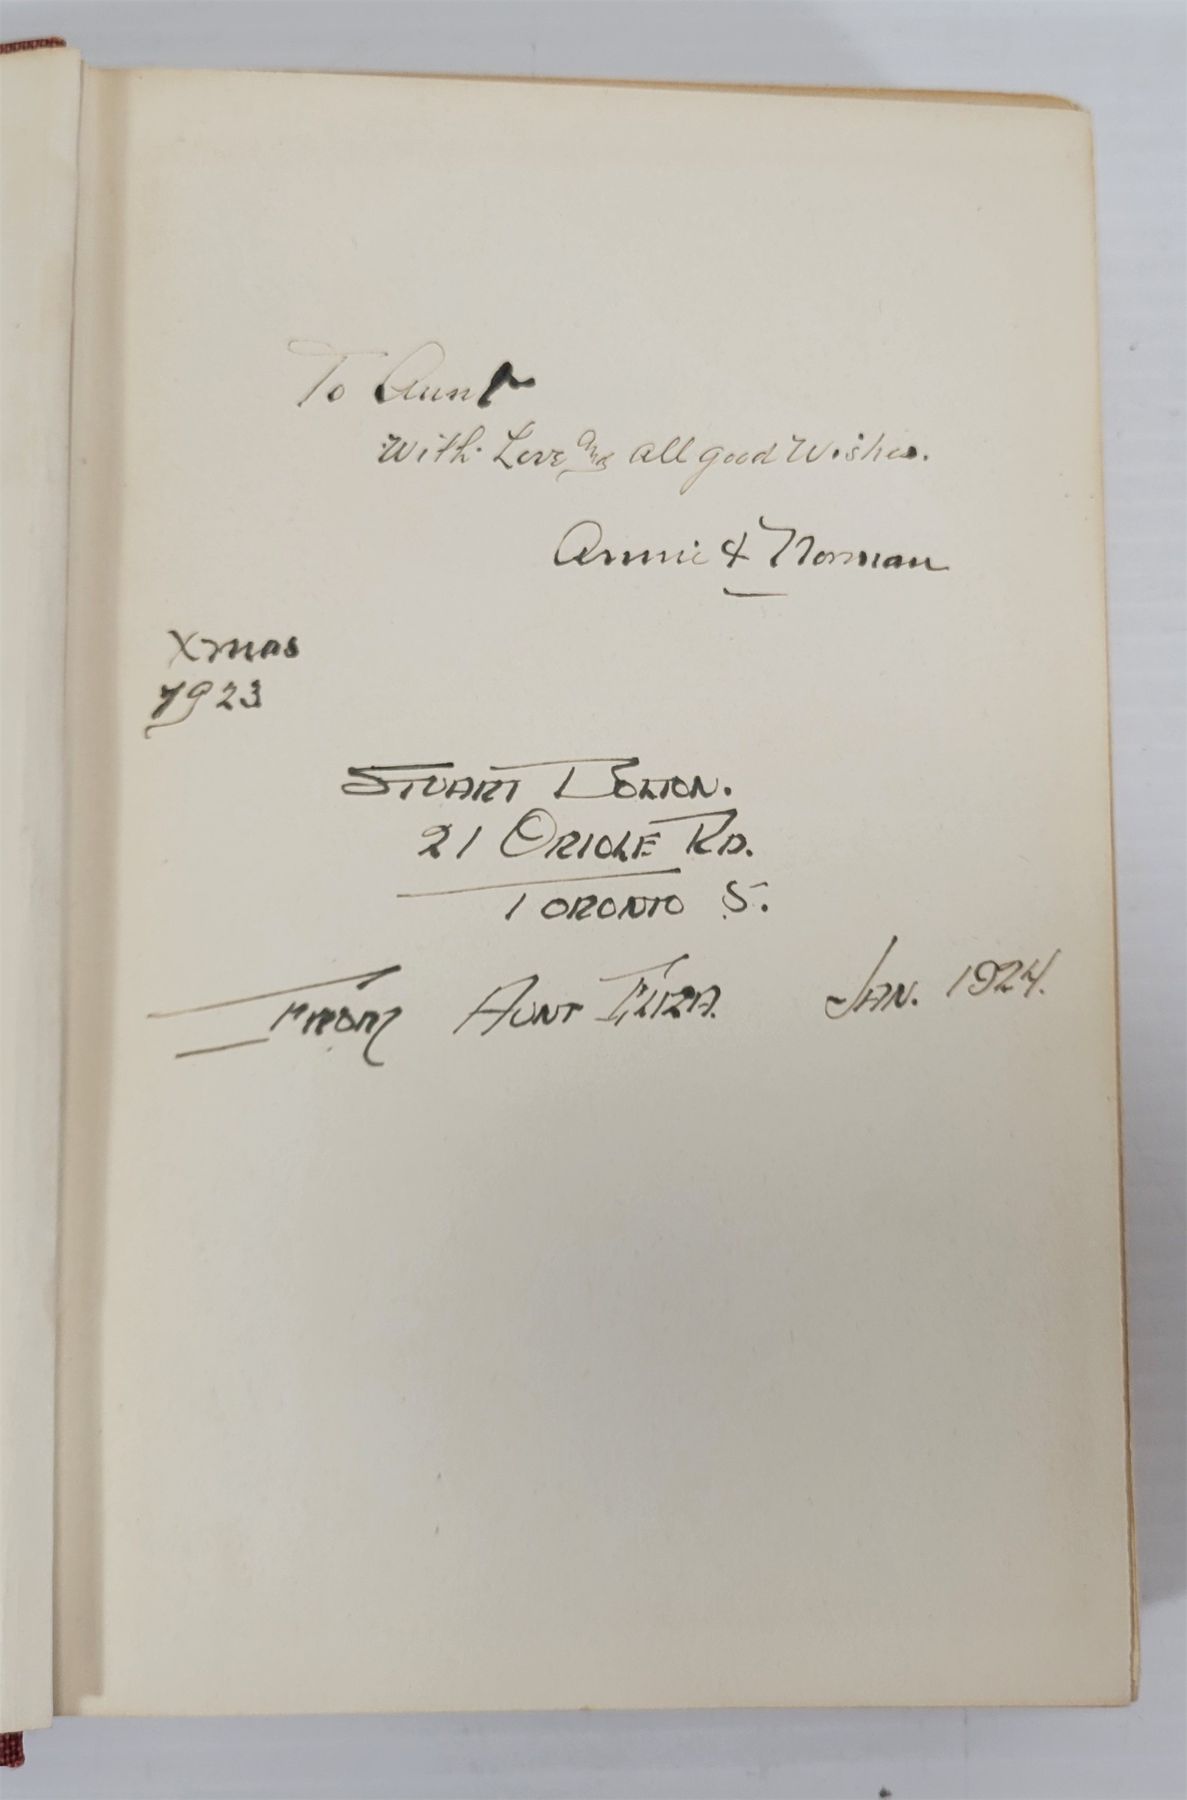 To Aunt
With Love and all good Wishes.
Annie & Norman
Xmas
1923
STUART BOLTON.
21 ORIOLE RD.
TORONTO 5.
FROM AUNT ELIZA. JAN. 1924.